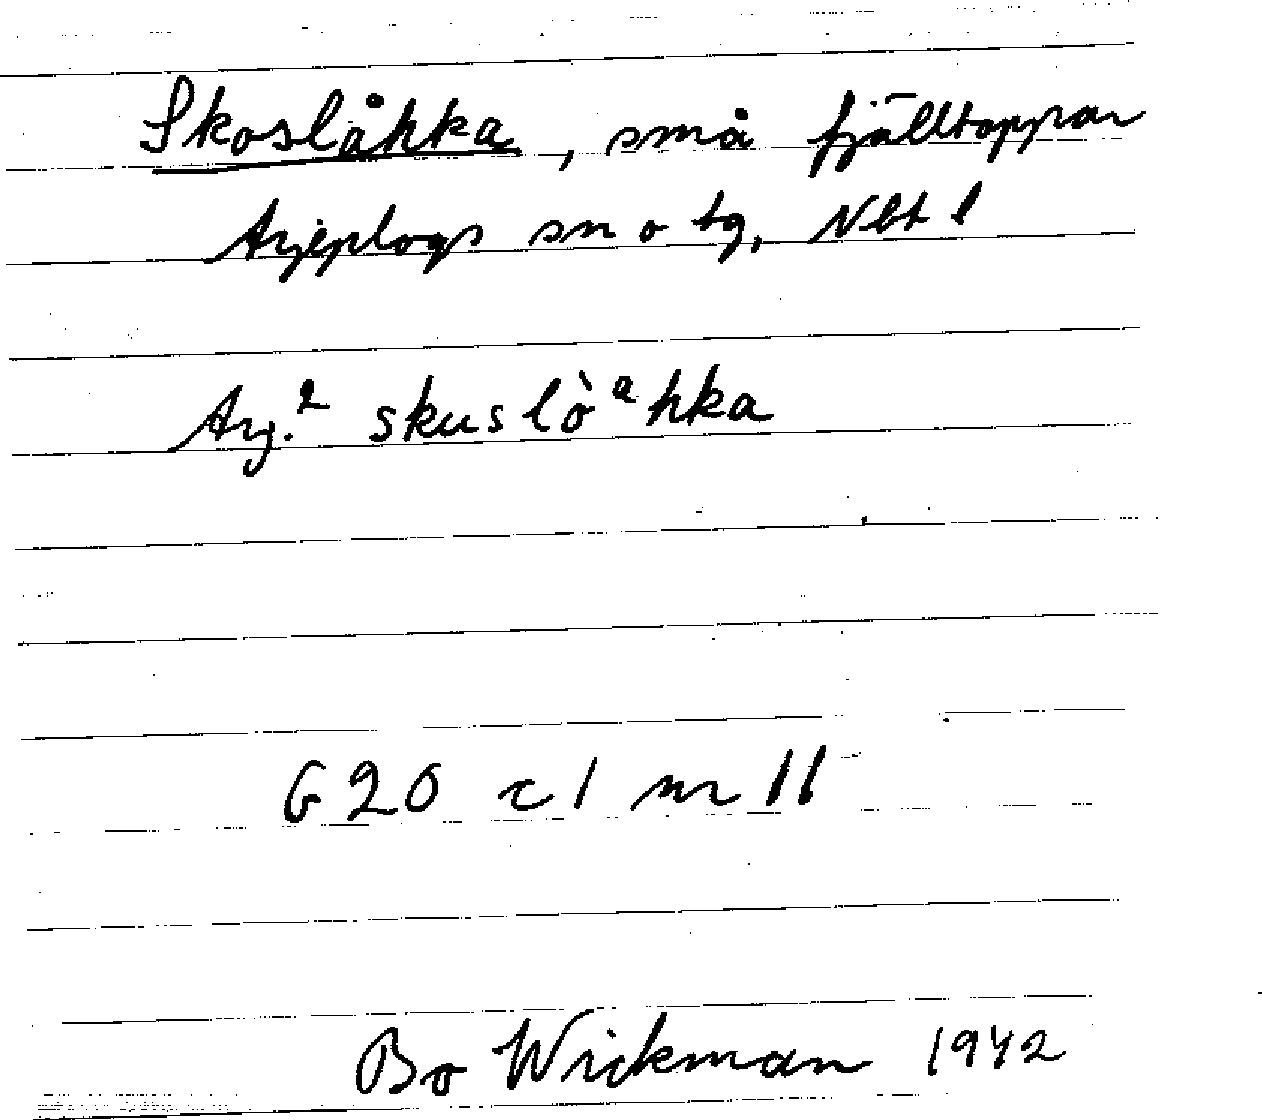 Skoslåhka, små fjälltoppar
Arjeplogs sn o tg, Nbt l
Arj.² skuslòᵃhka
G20 c1 nr 11
Bo Wickman 1942